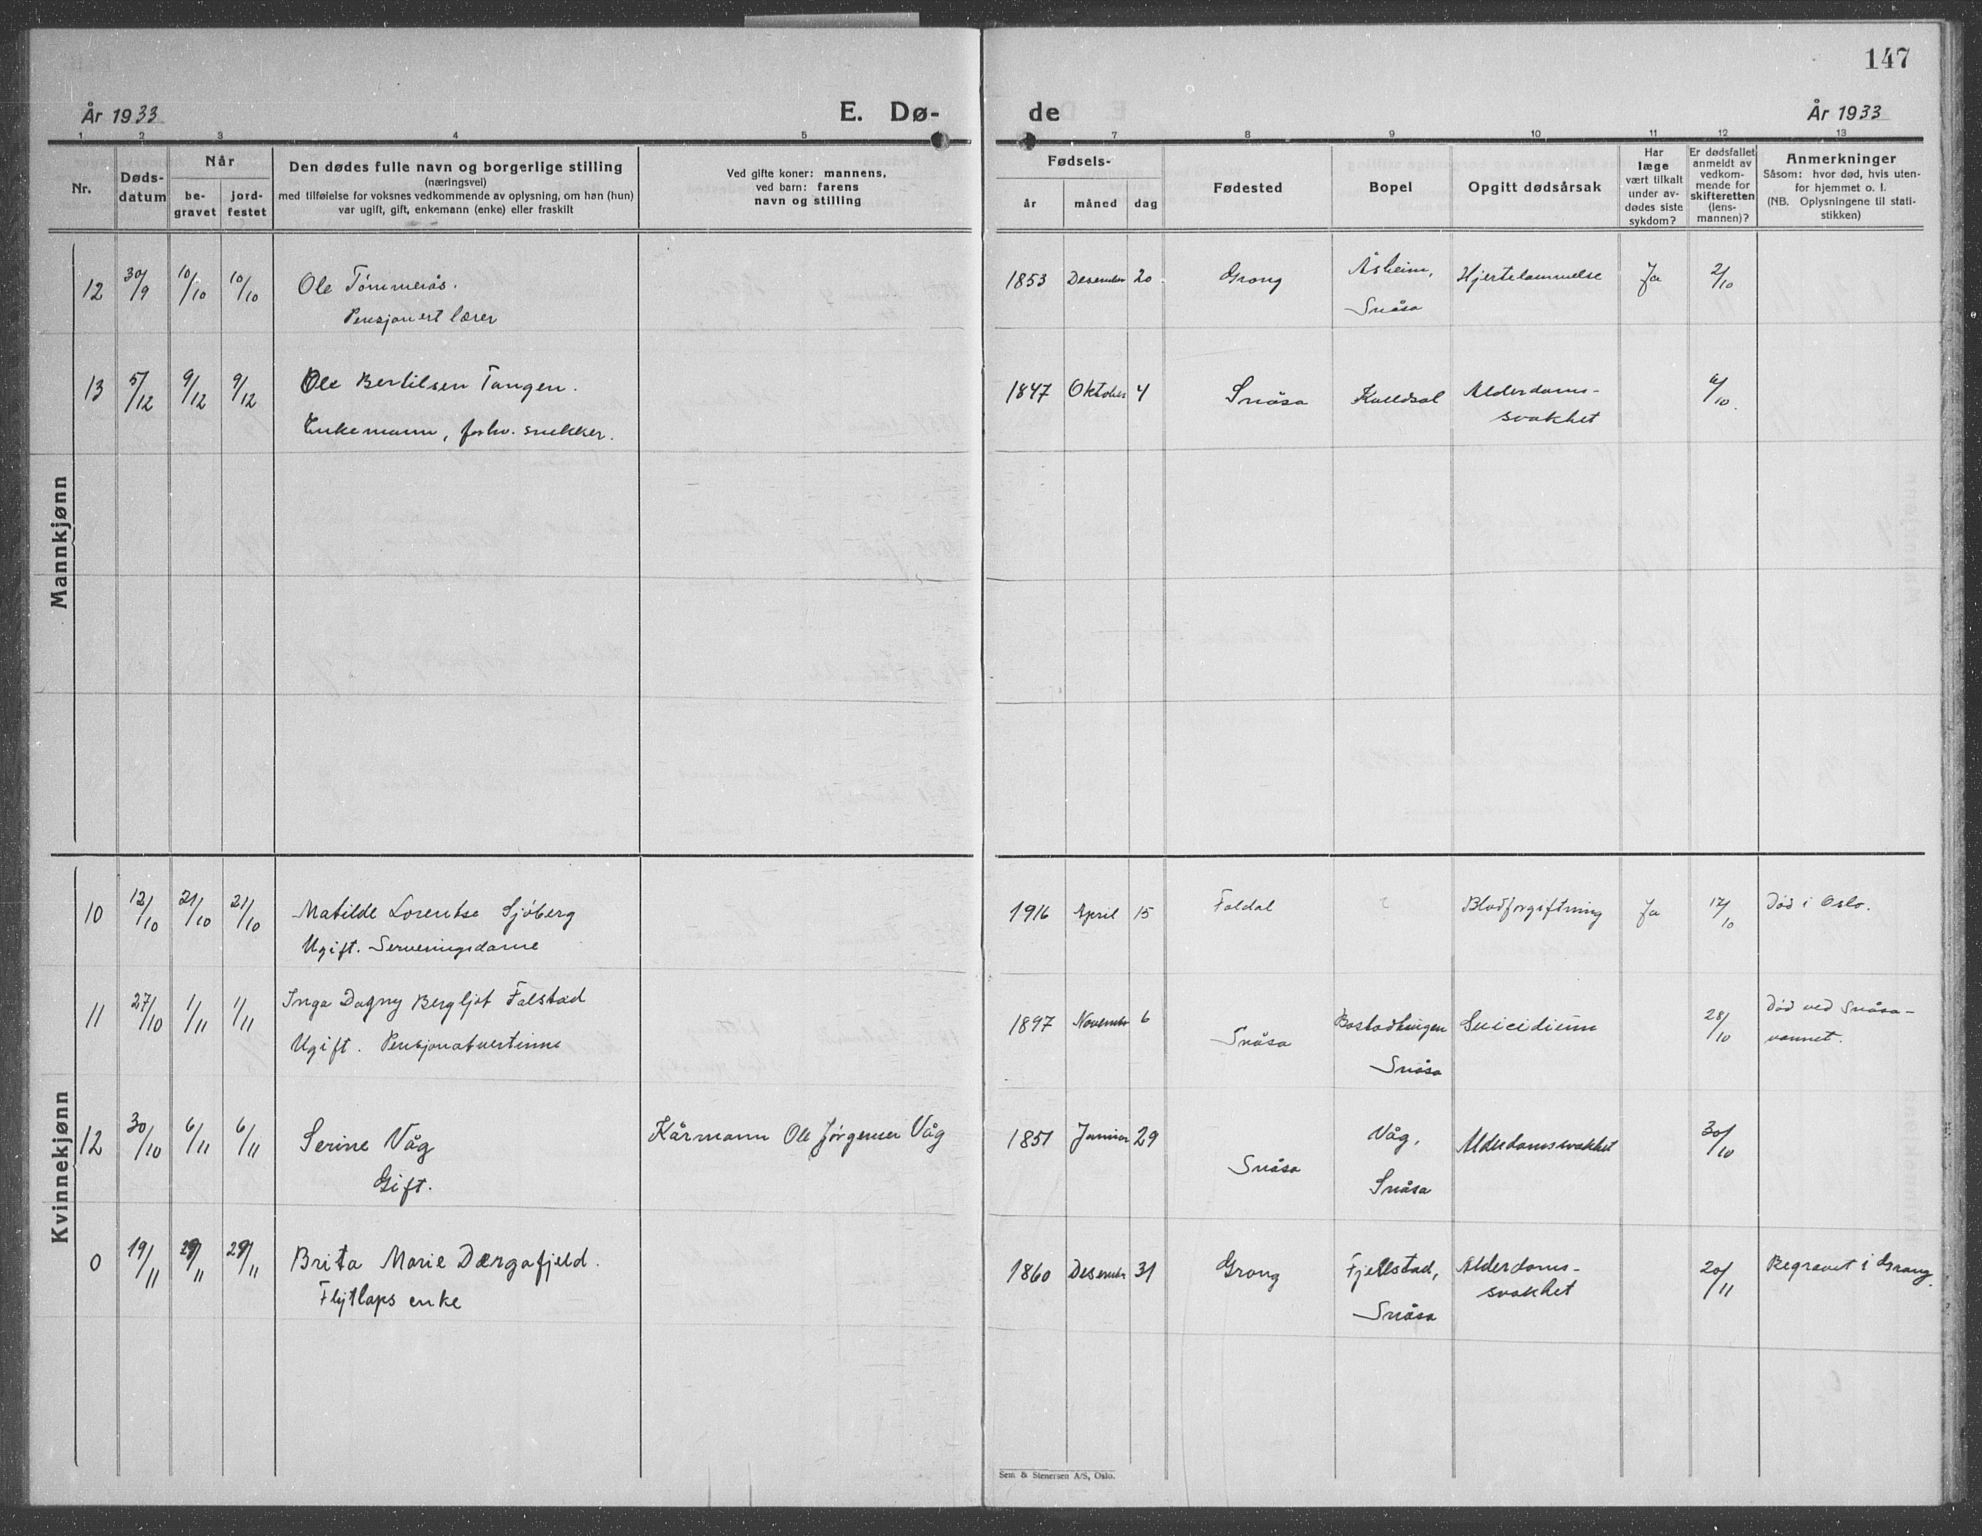 147
År 1933
E. Dø-
de
År 1933
1 2 3 4 5 7 8 9 10 11 12 13
Nr.
Døds-
datum
Når
be-
gravet
jord-
festet
Den dødes fulle navn og borgerlige stilling
(næringsvei)
med tilføielse for voksnes vedkommende av oplysning, om han (hun)
var ugift, gift, enkemann (enke) eller fraskilt
Ved gifte koner: mannens,
ved barn: farens
navn og stilling
Fødsels-
år måned dag
Fødested
Bopel
Opgitt dødsårsak
Har
læge
vært tilkalt
under av-
dødes siste
sykdom?
Er dødsfallet
anmeldt av
vedkom-
mende for
skifteretten
(lens-
mannen)?
Anmerkninger
Såsom: hvor død, hvis uten-
for hjemmet o. l.
(NB. Oplysningene til stati-
stikken)
Mannkjønn
12 30/9 10/10 10/10 Ole Tømmerås. 1853 Desember 20 Grong Åsheim, Hjertelammelse Ja 2/10
Pensjonert lærer Snåsa
13 5/12 9/12 9/12 Ole Bertilsen Tangen. 1847 Oktober 4 Snåsa Kveldsal Alderdoms-
Enkemann, forhv. snekker. svakhet
Kvinnekjønn
10 12/10 21/10 21/10 Matilde Lorentse Sjöberg 1916 April 15 Foldal Blodforgiftning Ja 17/10 Död i Oslo.
Ugift. Serveringsdame
11 27/10 1/11 1/11 Inga Dagny Bergljot Falstad 1897 November 6 Snåsa Suicidium 28/10 Död ved Snåsa-
Ugift. Pensjonatvertinne Snåsa vannet.
12 30/10 6/11 6/11 Serine Våg Kårmann Ole Jørgensen Våg 1851 Januar 29 Snåsa Våg, Alderdomssvakhet 30/10
Gift. Snåsa
0 19/11 29/11 29/11 Brita Marie Dærgafjeld. 1860 Desember 31 Grong Fjellstad, Alderdoms- 20/11 Begravet i Grong.
Flytlaps enke Snåsa svakhet
Sem & Stenersen A/S, Oslo.